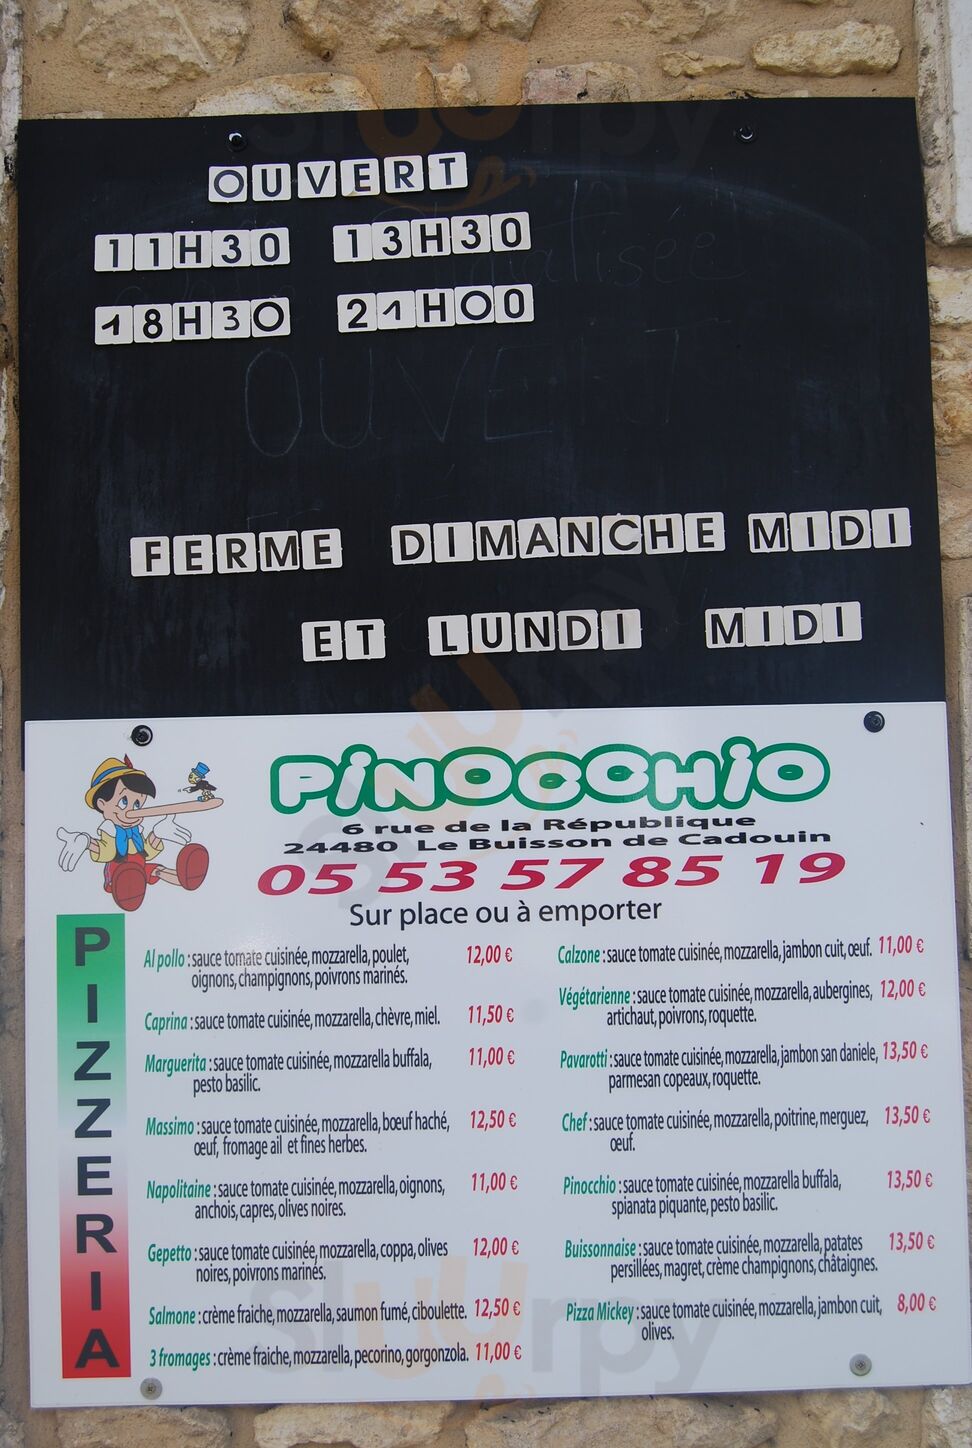 OUVERT
11H30 13H30
18H30 21H00
OUVERT
FERME DIMANCHE MIDI
ET LUNDI MIDI
PINOCCHIO
6 rue de la République
24480 Le Buisson de Cadouin
05 53 57 85 19
Sur place ou à emporter
PIZZERIA
Al pollo : sauce tomate cuisinée, mozzarella, poulet, 12,00 €
oignons, champignons, poivrons marinés.
Caprina : sauce tomate cuisinée, mozzarella, chèvre, miel. 11,50 €
Marguerita : sauce tomate cuisinée, mozzarella buffala, 11,00 €
pesto basilic.
Massimo : sauce tomate cuisinée, mozzarella, bœuf haché, 12,50 €
œuf, fromage ail et fines herbes.
Napolitaine : sauce tomate cuisinée, mozzarella, oignons, 11,00 €
anchois, capres, olives noires.
Gepetto : sauce tomate cuisinée, mozzarella, coppa, olives 12,00 €
noires, poivrons marinés.
Salmone : crème fraiche, mozzarella, saumon fumé, ciboulette. 12,50 €
3 fromages : crème fraiche, mozzarella, pecorino, gorgonzola. 11,00 €
Calzone : sauce tomate cuisinée, mozzarella, jambon cuit, œuf. 11,00 €
Végétarienne : sauce tomate cuisinée, mozzarella, aubergines, 12,00 €
artichaut, poivrons, roquette.
Pavarotti : sauce tomate cuisinée, mozzarella, jambon san daniele, 13,50 €
parmesan copeaux, roquette.
Chef : sauce tomate cuisinée, mozzarella, poitrine, merguez, 13,50 €
œuf.
Pinocchio : sauce tomate cuisinée, mozzarella buffala, 13,50 €
spianata piquante, pesto basilic.
Buissonnaise : sauce tomate cuisinée, mozzarella, patates 13,50 €
persillées, magret, crème champignons, châtaignes.
Pizza Mickey : sauce tomate cuisinée, mozzarella, jambon cuit, 8,00 €
olives.
Sluurpy
Sluurpy
Sluurpy